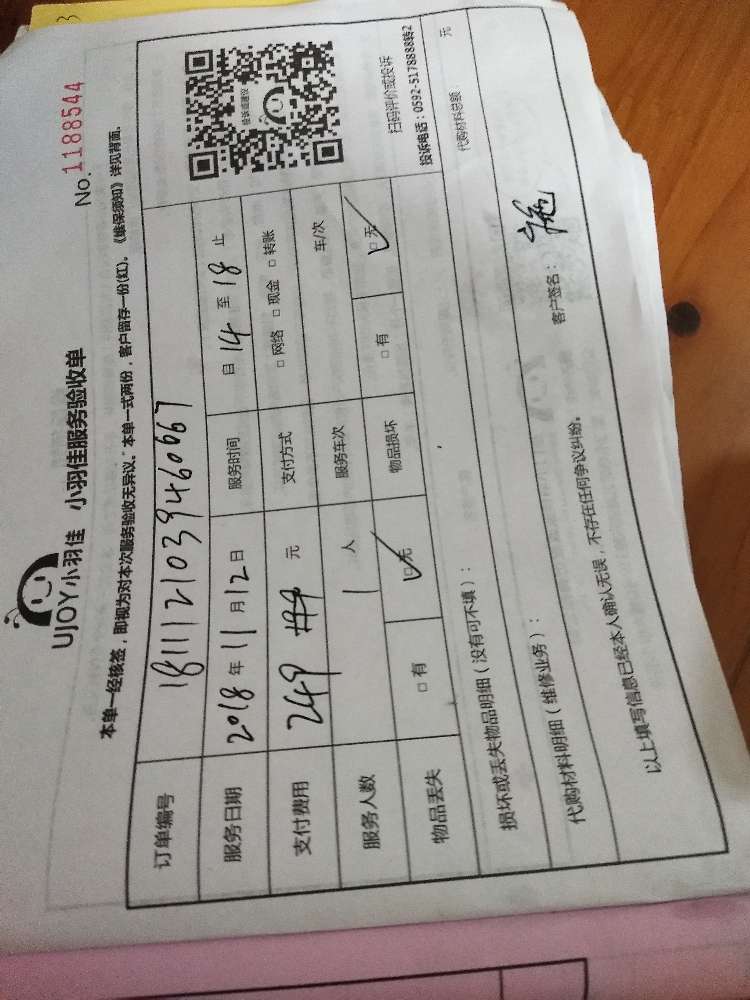 UJOY小羽佳 小羽佳服务验收单
No.1188544
本单一经核签，即视为对本次服务验收无异议。本单一式两份，客户留存一份(红)。《维保须知》详见背面。
订单编号 1811121039460667
服务日期 2018年11月12日 服务时间 自14至18止
支付费用 249 元 支付方式 □网络 □现金 □转账
服务人数 1人 服务车次 车/次
物品丢失 □有 □无 物品损坏 □有 □无
投诉或建议
扫码评价或投诉
投诉电话：0592-5178888转2
损坏或丢失物品明细（没有可不填）：
代购材料明细（维修业务）： 代购材料总额 元
以上填写信息已经本人确认无误，不存在任何争议纠纷。
客户签名：